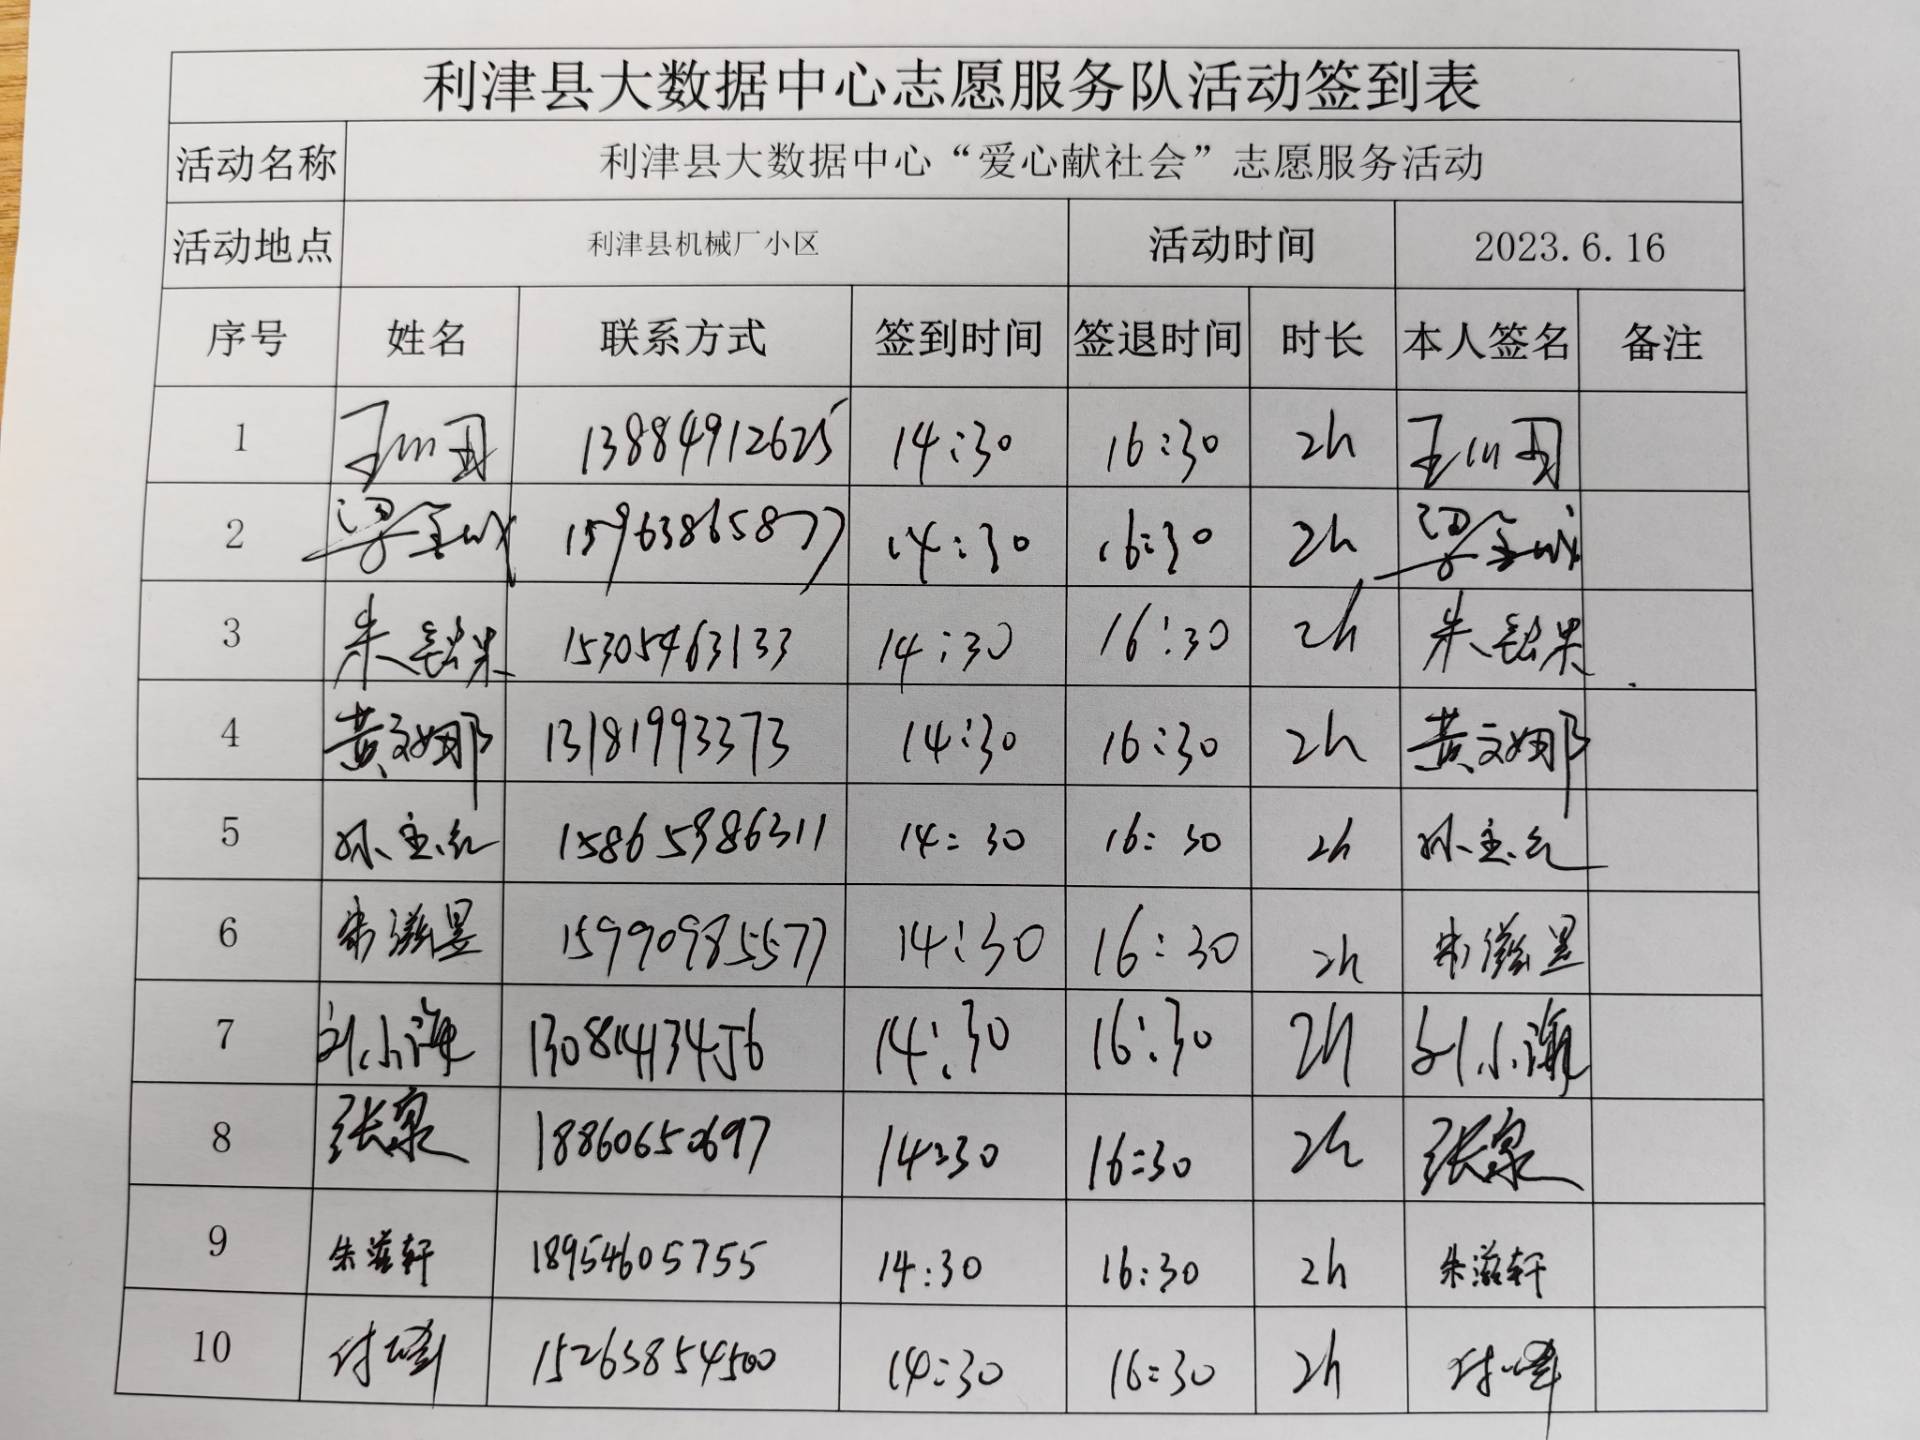 利津县大数据中心志愿服务队活动签到表
活动名称 利津县大数据中心“爱心献社会”志愿服务活动
活动地点 利津县机械厂小区 活动时间 2023.6.16
序号 姓名 联系方式 签到时间 签退时间 时长 本人签名 备注
1 13884912625 14:30 16:30 2h
2 梁金城 15963865877 14:30 16:30 2h 梁金城
3 15305463133 14:30 16:30 2h
4 黄文娜 13181993373 14:30 16:30 2h 黄文娜
5 15865986311 14:30 16:30 2h
6 15990985577 14:30 16:30 2h
7 刘小海 13081413456 14:30 16:30 2h 刘小海
8 张泉 18860650697 14:30 16:30 2h 张泉
9 朱滋轩 18954605755 14:30 16:30 2h 朱滋轩
10 付峰 15263854500 14:30 16:30 2h 付峰